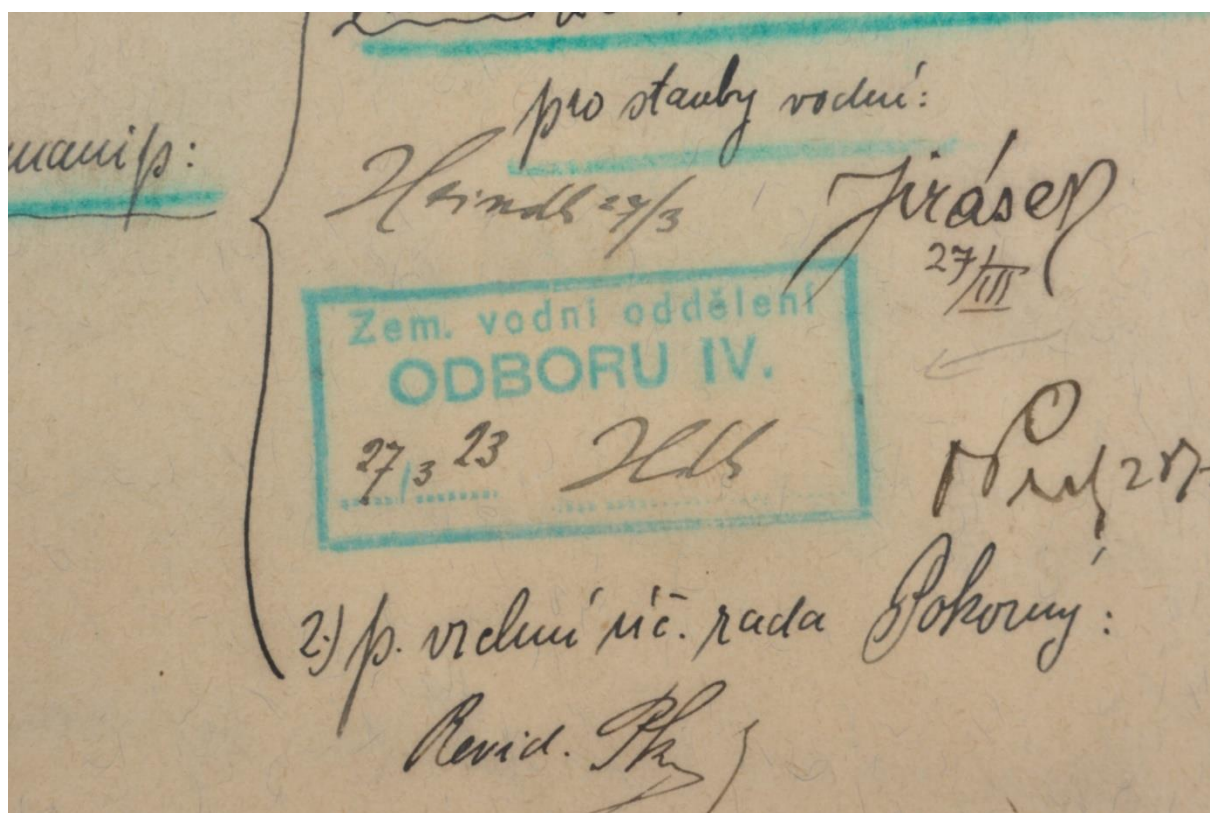 pro stavby vodní:
manip:
Heindl 27/3
Jirásek
27/III
Zem. vodní oddělení
ODBORU IV.
27/3 23 Hdl
2.) p. vrchní úč. rada Pokorný:
Revid. Pk